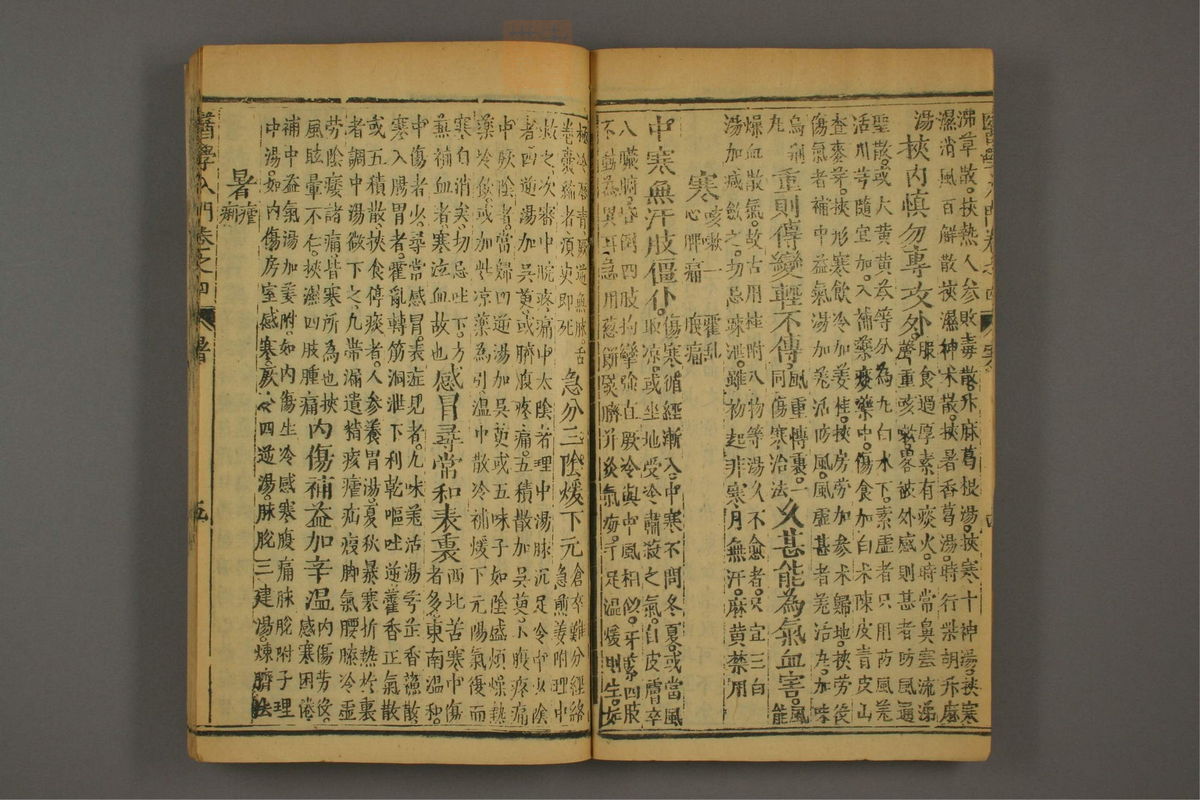 沸草散。挾熱人參敗毒散升麻葛根湯。挾寒十神湯。挾寒
濕消風百解散挾濕神术散。挾暑香葛湯。時行柴胡升麻
湯
挾內慎勿專攻外。
服食過厚素有痰火。時常鼻塞流涕
聲重咳嗽。畧被外感則甚者防風通
聖散。或大黃
等分為丸白水下。素虛者只用防風羌
活川芎隨宜加。入補藥痰藥中。傷食加白术陳皮青皮山
查麥芽。挾形寒飲冷加姜桂。挾房勞加參术歸地。挾勞役
傷氣者補中益氣湯加羌活防風。風虛甚者羌活丸。加味
烏
丸
重則傳變輕不傳。
風重傳裏。一
同傷寒治法
久甚能為氣血害。
風能
燥血散氣。故古用桂附八物等湯久不愈者。只宜三白
湯加減斂之。切忌踈泄。雖初起非寒月無汗。麻黃禁用
寒
咳嗽 霍亂
心脾痛 腹痛
中寒無汗肢僵仆。
傷寒。循經漸入。中寒不問冬夏。或當風
取凉。或坐地受冷肅殺之氣。自皮膚卒
八臟腑。昏倒四肢拘攣強直厥冷與中風相似。牙緊四肢
不動為異耳。急用葱餅熨臍并灸氣海。手足溫煖則生。如
極冷唇青厥逆無脉。舌
卷囊縮者須臾即死
急分三陰煖下元
倉卒難分經絡
急煎姜附理中
救之。次審中脘疼痛中太陰者理中湯。脉沉足冷中少陰
者四逆湯加吳萸。或臍腹疼痛五積散加吳萸。小腹疼痛
中厥陰者。當歸四逆湯加吳萸或五味子如陰盛煩燥熱
藥冷飲。或加些凉藥為引。溫中散冷補煖下元陽氣復而
寒自消矣。切忌吐下。方
無補血者寒泣血故也
感冒尋常和表裏
西北苦寒中傷
者多。東南溫和。
中傷者少。尋常感冒。表症見者。九味羌活湯芎芷香蘇散
寒入腸胃者。霍亂轉筋洞泄下利乾嘔吐逆藿香正氣散
或五積散。挾食停痰者。人參養胃湯。夏秋暴寒折熱於裏
者調中湯微下之。凡帶漏遺精痎瘧疝瘕脚氣腰膝冷虛
勞陰痿諸痛皆寒所為也挾
風眩暈不仁。挾濕四肢腫痛
內傷補益加辛溫
內傷勞役。
感寒困倦
補中益氣湯加姜附。如內傷生冷感寒腹痛脉脫附子理
中湯。如內傷房室感寒。厥冷四逆湯。脉脫三建湯。煉臍法
暑
瘧
痢
醫學入門卷之四
暑
五